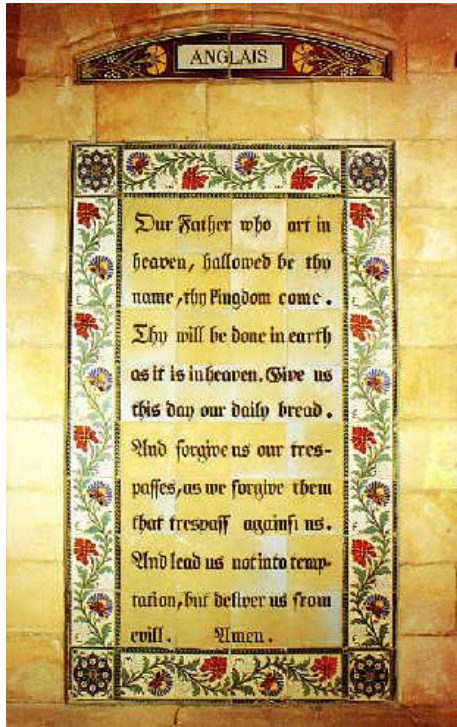 ANGLAIS
Our Father who art in
heaven, hallowed be thy
name, thy kingdom come.
Thy will be done in earth
as it is in heaven. Give us
this day our daily bread.
And forgive us our tres-
paſſes, as we forgive them
that treſpaſſ againſt us.
And lead us not into temp-
tation, but deliver us from
evill. Amen.